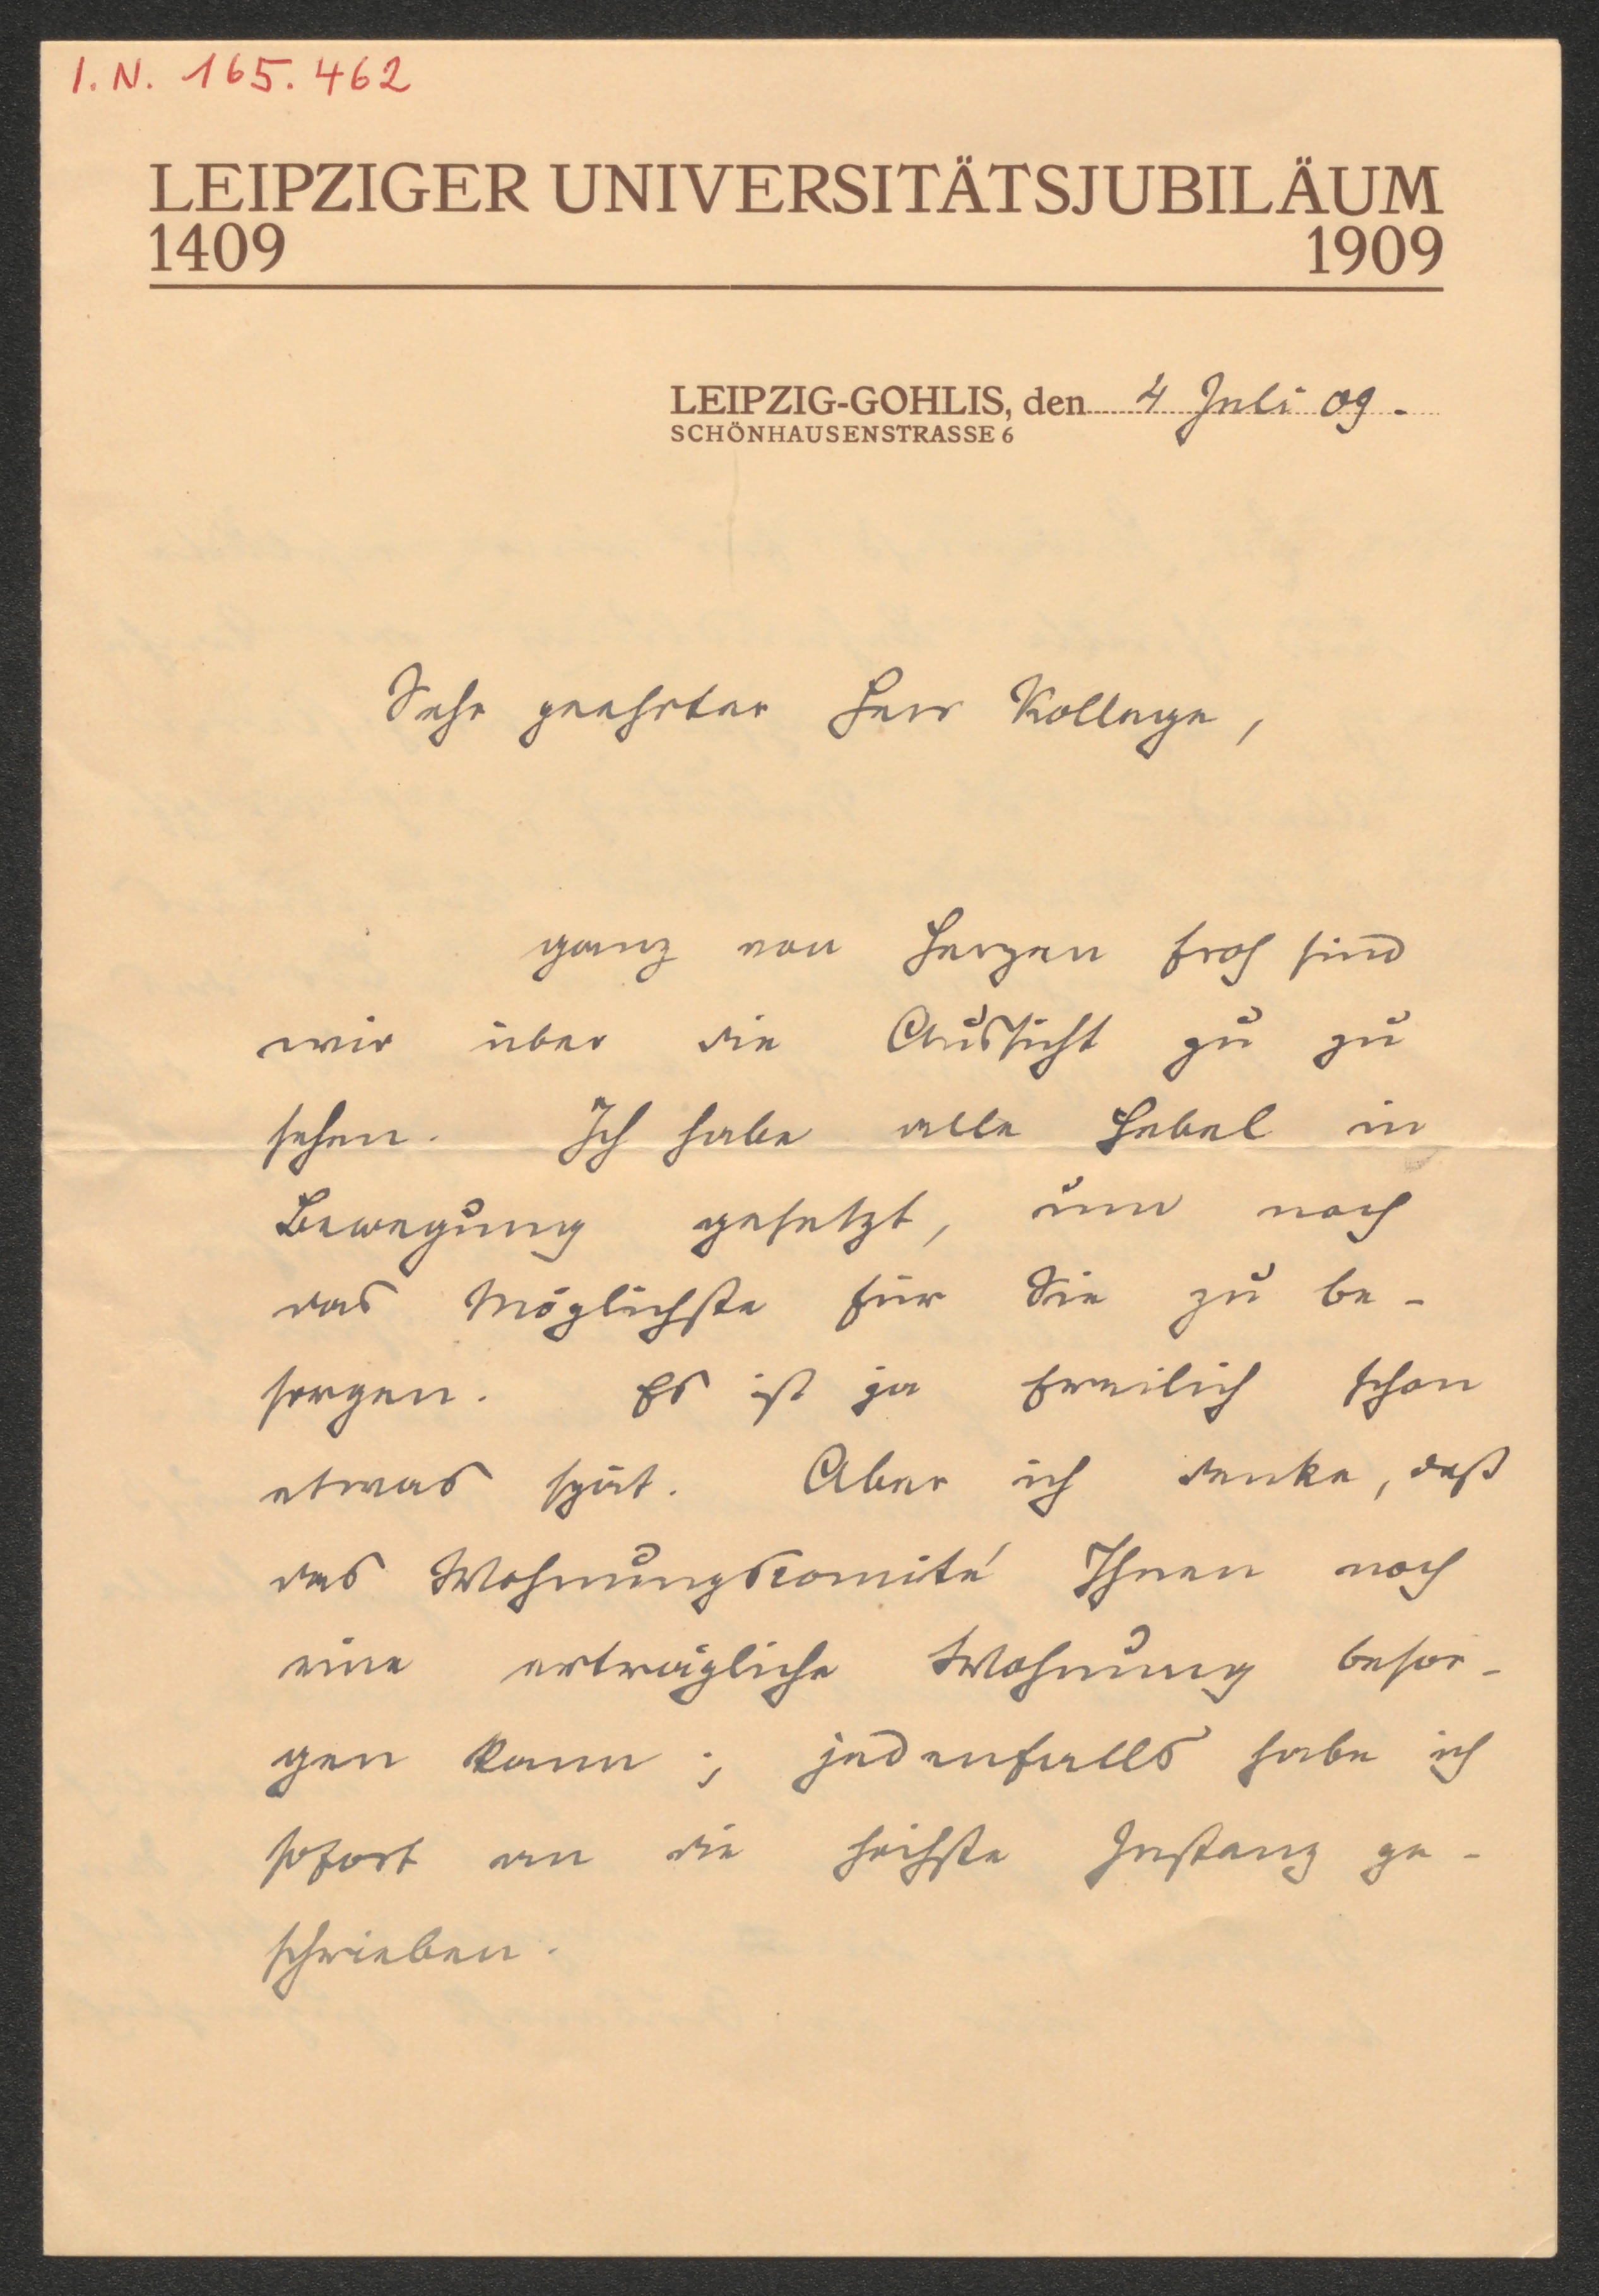 I. N. 165.462
LEIPZIGER UNIVERSITÄTSJUBILÄUM
1409 1909
LEIPZIG-GOHLIS, den 4 Juli 09.
SCHÖNHAUSENSTRASSE 6
Sehr geehrter Herr Kollege,
ganz von Herzen froh sind
wir über die Aussicht zu zu
sehen. Ich habe alle Hebel in
Bewegung gesetzt, um noch
das Möglichste für Sie zu be-
sorgen. Es ist ja freilich schon
etwas spät. Aber ich denke, daß
das Wohnungscomité Ihnen noch
eine erträgliche Wohnung besor-
gen kann; jedenfalls habe ich
sofort an die höchste Instanz ge-
schrieben.